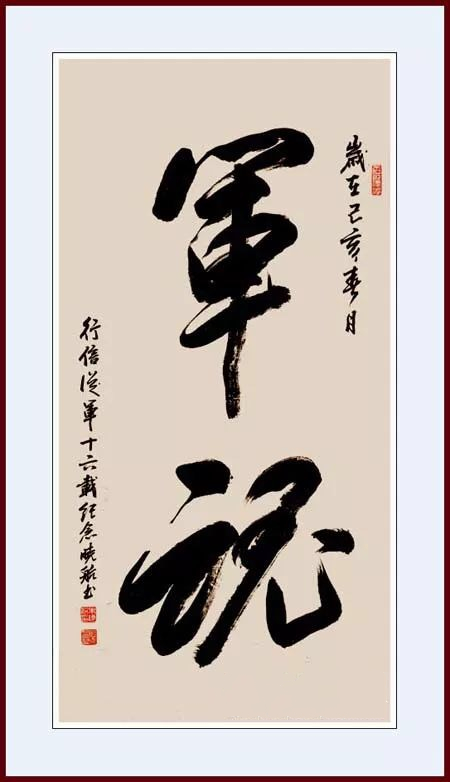 歲在己亥春月
軍魂
行信從軍十六載紀念曉龍書